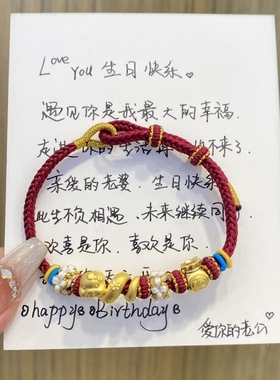 Love you 生日快乐
遇见你是我最大的幸福
走进你的生活 不来了
亲爱的老婆 生日快乐
此生不负相遇 未来继续同
欢喜是你 喜欢是你
happy Birthday
爱你的老公